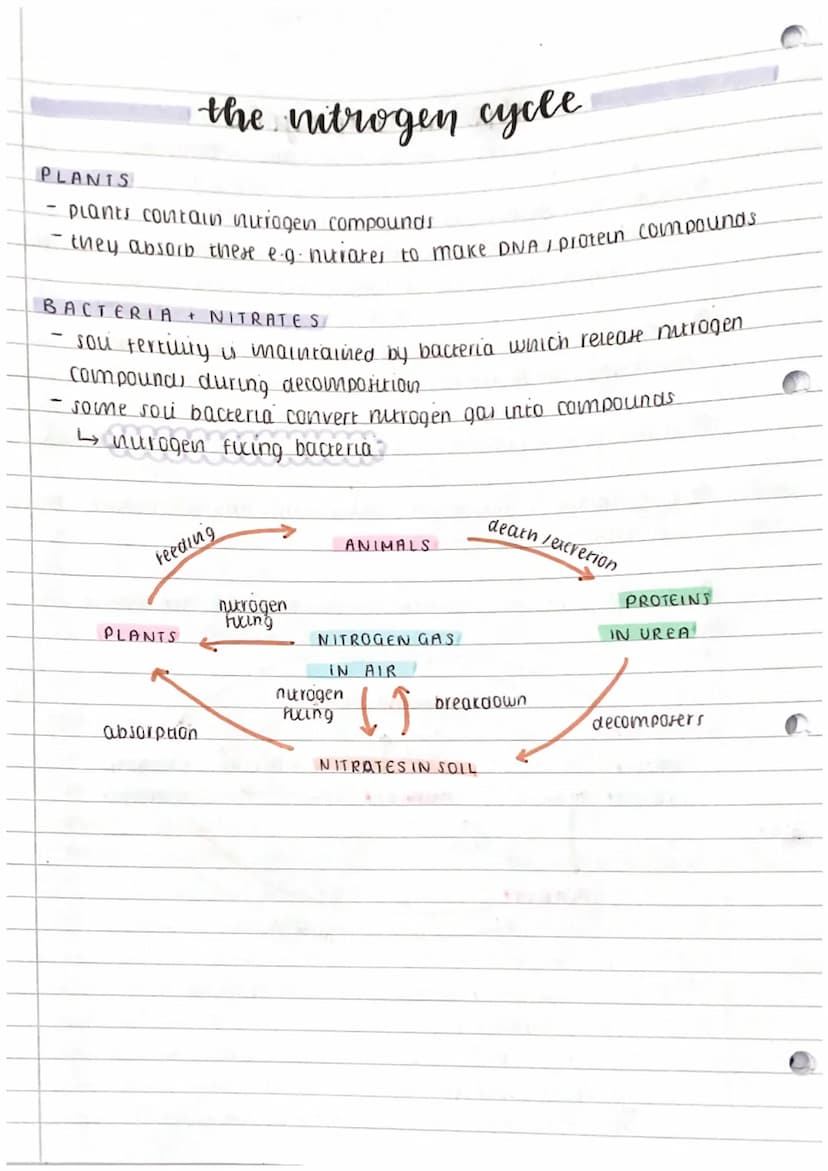 the nitrogen cycle
PLANTS
- plants contain nitrogen compounds
- they absorb these e.g. nitrates to make DNA / protein compounds
BACTERIA + NITRATES
- soil fertility is maintained by bacteria which release nitrogen
compounds during decomposition
- some soil bacteria convert nitrogen gas into compounds
↳ nitrogen fixing bacteria
feeding
ANIMALS
death / excretion
PROTEINS
IN UREA
nitrogen
fixing
PLANTS
NITROGEN GAS
IN AIR
nitrogen
fixing
breakdown
decomposers
absorption
NITRATES IN SOIL